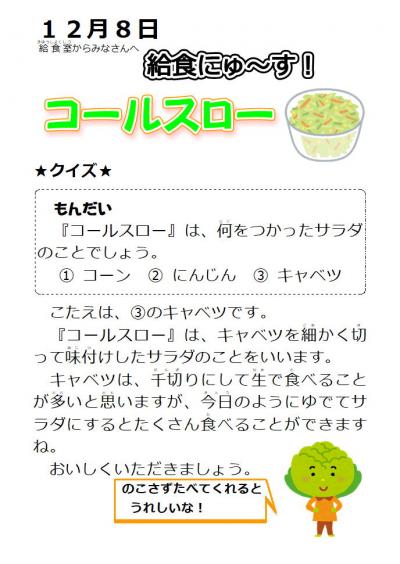 １２月８日
給食室からみなさんへ
給食にゅ～す！
コールスロー
★クイズ★
もんだい
『コールスロー』は、何をつかったサラダ
のことでしょう。
① コーン　② にんじん　③ キャベツ
こたえは、③のキャベツです。
『コールスロー』は、キャベツを細かく切
って味付けしたサラダのことをいいます。
キャベツは、千切りにして生で食べること
が多いと思いますが、今日のようにゆでてサ
ラダにするとたくさん食べることができます
ね。
おいしくいただきましょう。
のこさずたべてくれると
うれしいな！